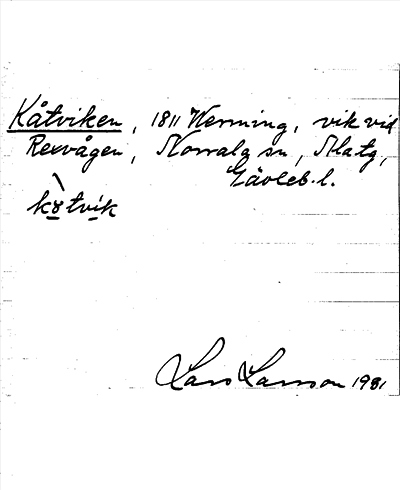 Kåtviken, 1811 Werming, vik vid
Rexvågen, Norrala sn, Matg,
Gävleb. l.
kɤtvik
Lars Larsson 1981